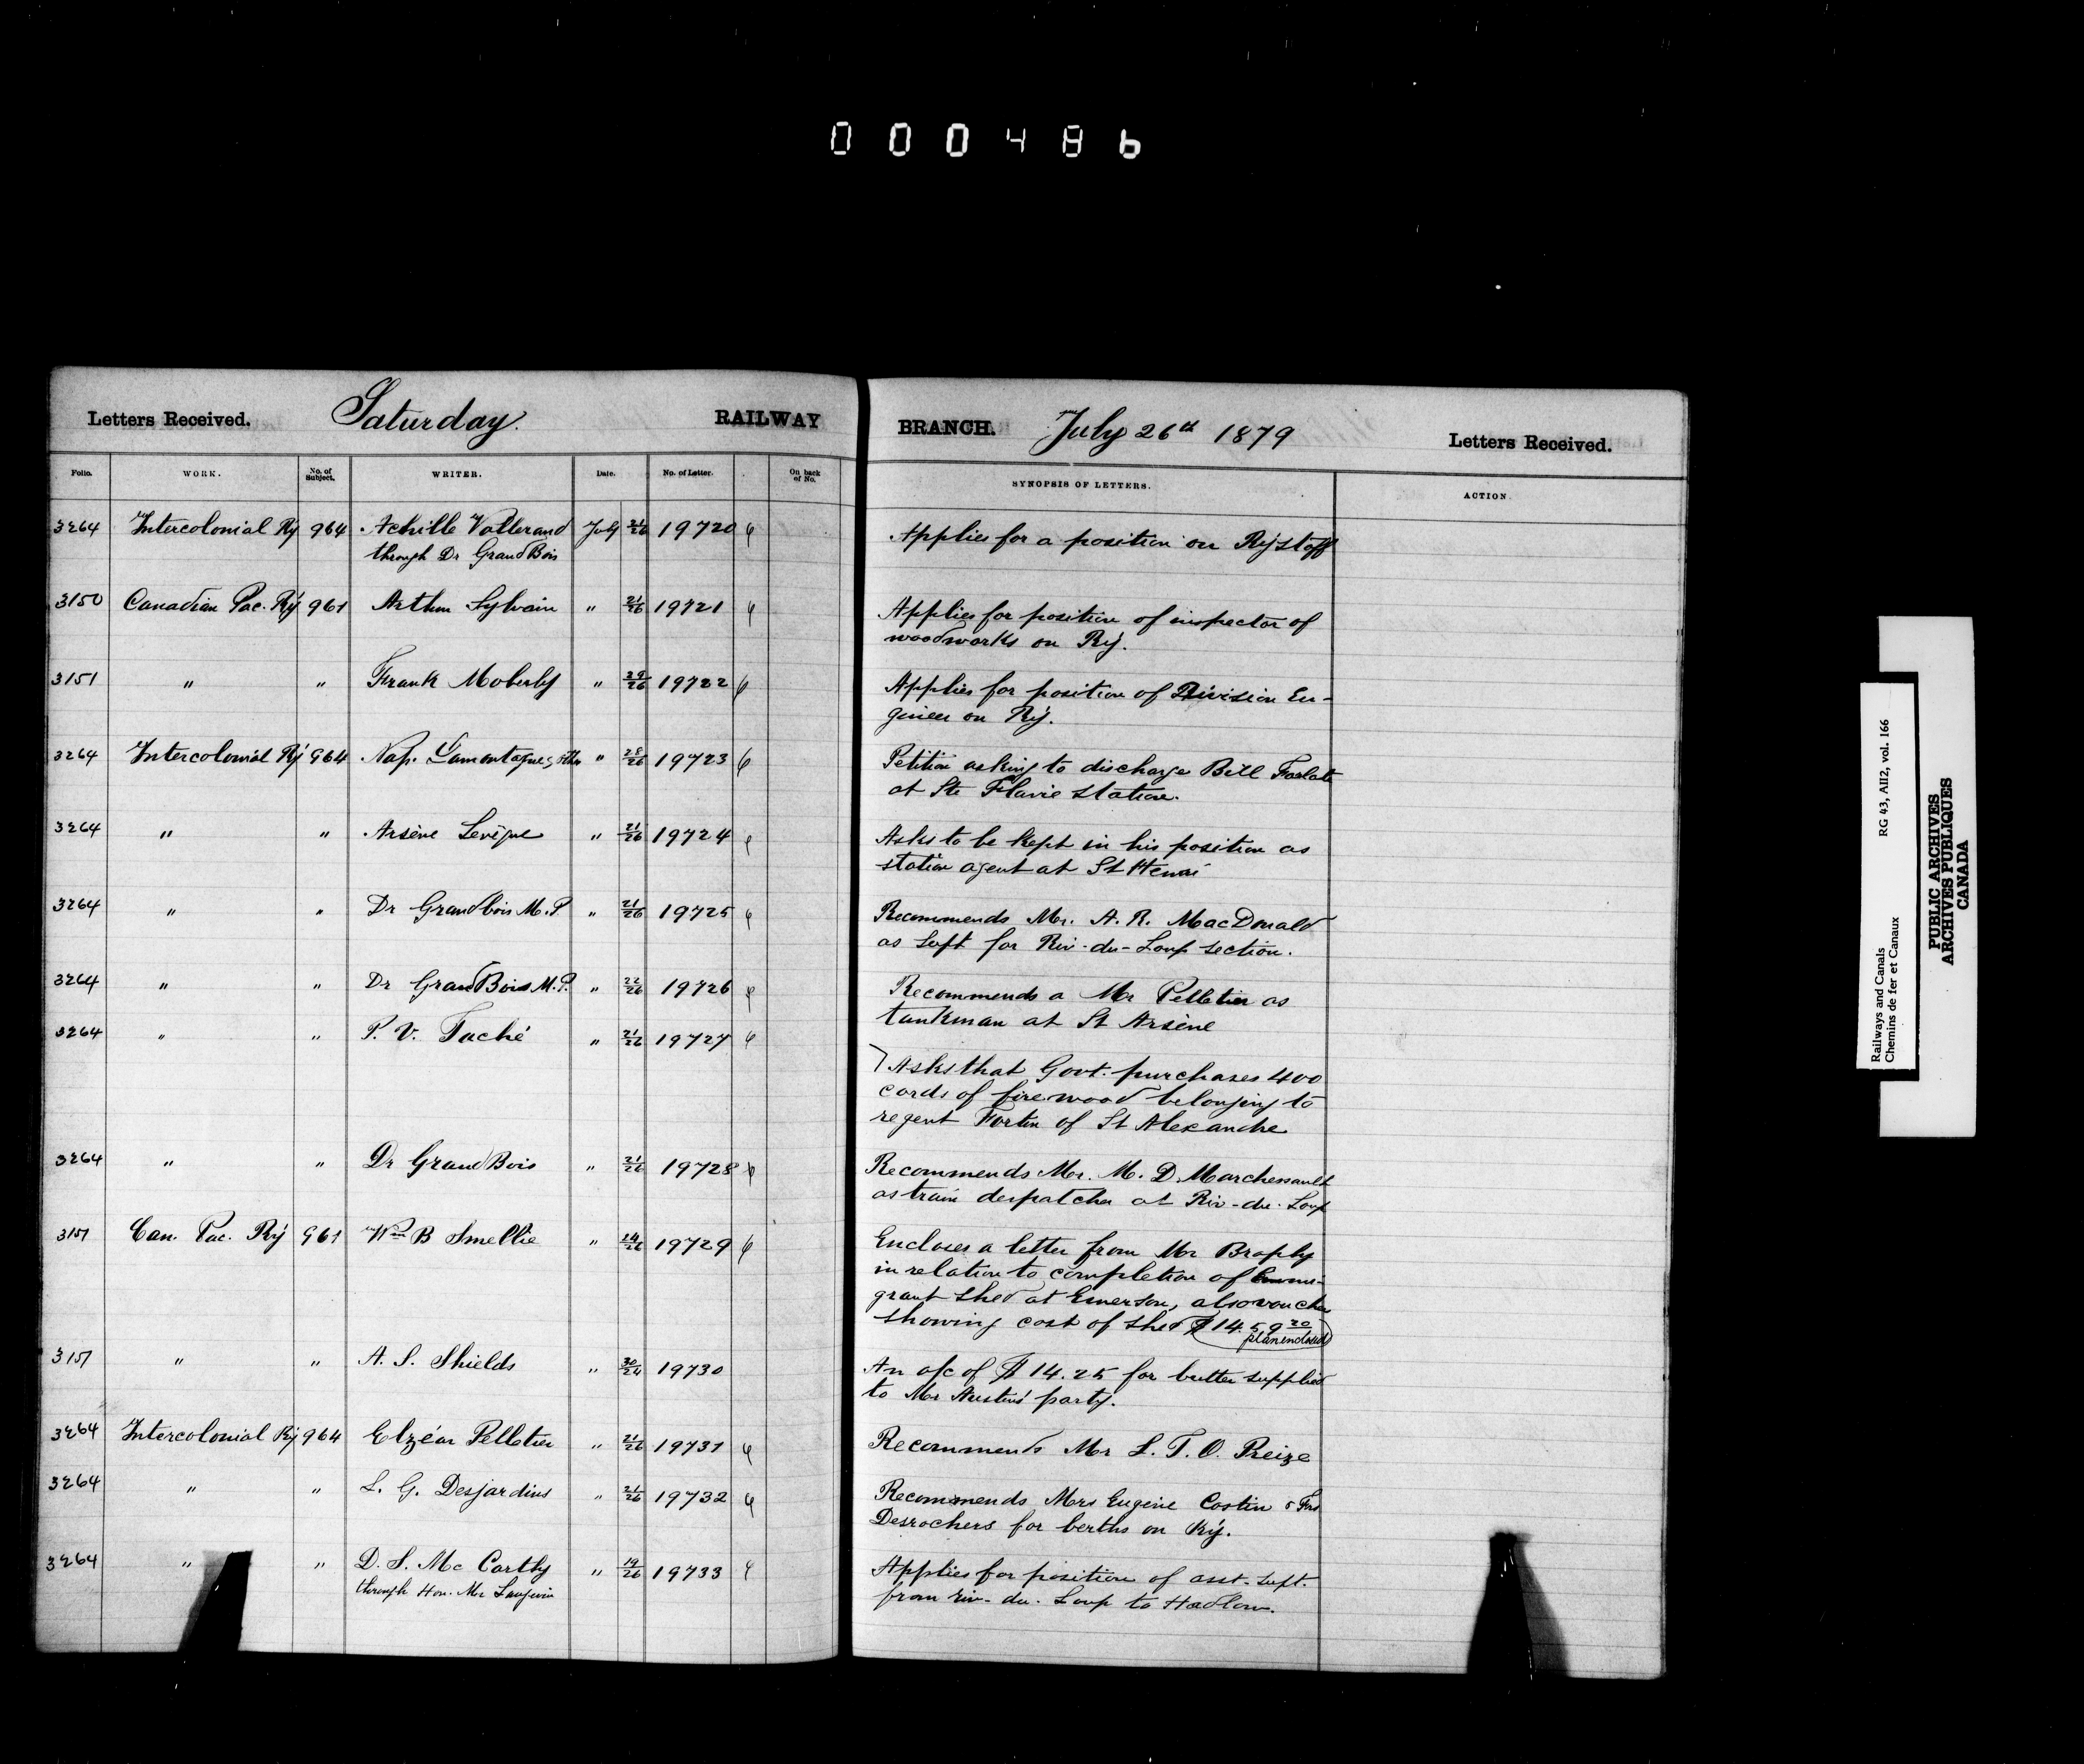 000486
Letters Received. Saturday. RAILWAY
Folio. WORK. No. of Subject. WRITER. Date. No. of Letter. On back of No.
3264 Intercolonial Ry 964 Achille Vallerand July 21/26 19720
through Dr GrandBois
3150 Canadian Pac. Ry 961 Arthur Sylvain " 21/26 19721
3151 " " Frank Moberly " 19722
3264 Intercolonial Ry 964 Nap. Lamontagne & othrs " 19723
3264 " " Arsène Levêque " 21/26 19724
3264 " " Dr Grandbois M.P. " 21/26 19725
3264 " " Dr GrandBois M.P. " 22/26 19726
3264 " " P. V. Taché " 21/26 19727
3264 " " Dr GrandBois " 21/26 19728
3151 Can. Pac. Ry 961 Wm B Smellie " 14/26 19729
3151 " " A. S. Shields " 19730
3264 Intercolonial Ry 964 Elzéar Pelletier " 21/26 19731
3264 " " L. G. Desjardins " 21/26 19732
3264 " " D. S. McCarthy " 19/26 19733
through Hon. Mr Langevin
BRANCH. July 26th 1879 Letters Received.
SYNOPSIS OF LETTERS. ACTION
Applies for a position on Ry staff
Applies for position of inspector of
woodworks on Ry.
Applies for position of Division En-
gineer on Ry.
Petition asking to discharge Bell
at Ste Flavie station.
Asks to be kept in his position as
station agent at St Henri
Recommends Mr. A. R. MacDonald
as Supt for Riv-du-Loup section.
Recommends a Mr Pelletier as
tankman at St Arsène
Asks that Govt. purchases 400
cords of firewood belonging to
regent Fortin of St Alexandre
Recommends Mr. M. D. Marchessault
as train despatcher at Riv-du-Loup
Encloses a letter from Mr Brophy
in relation to completion of Emmi-
grant shed at Emerson, also voucher
showing cost of shed $1459 20
plan enclosed
An a/c of $14.25 for butter supplied
to Mr Austin's party.
Recommends Mr L. T. O. Preize
Recommends Mers Eugène Costin & Frs
Desrochers for berths on Ry.
Applies for position of asst. supt.
from riv-du-Loup to Hadlow.
Railways and Canals RG 43, AII2, vol. 166
Chemins de fer et Canaux
PUBLIC ARCHIVES
ARCHIVES PUBLIQUES
CANADA